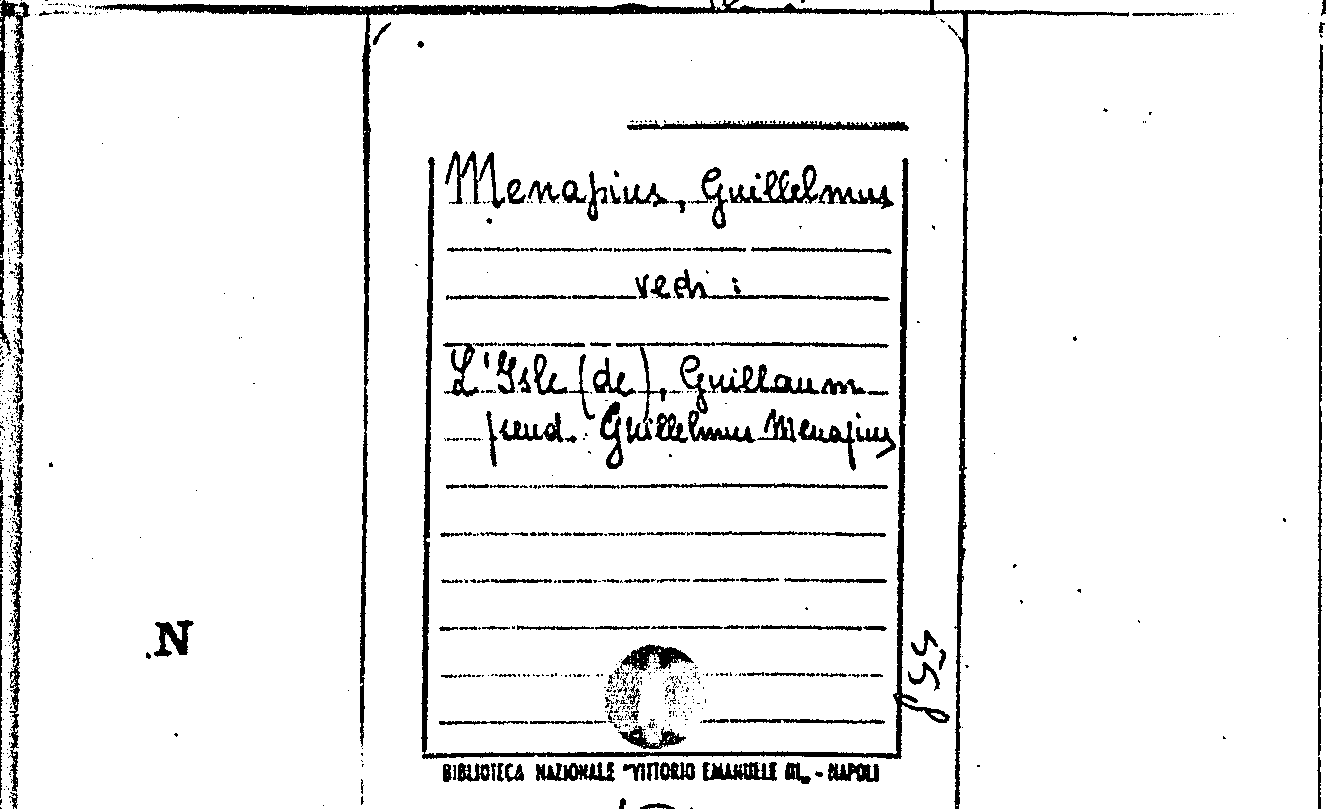 Menapius, Guillelmus
vedi :
L'Isle (de), Guillaum
pseud. Guillelmus Menapius
N
BIBLIOTECA NAZIONALE "VITTORIO EMANUELE III„ - NAPOLI